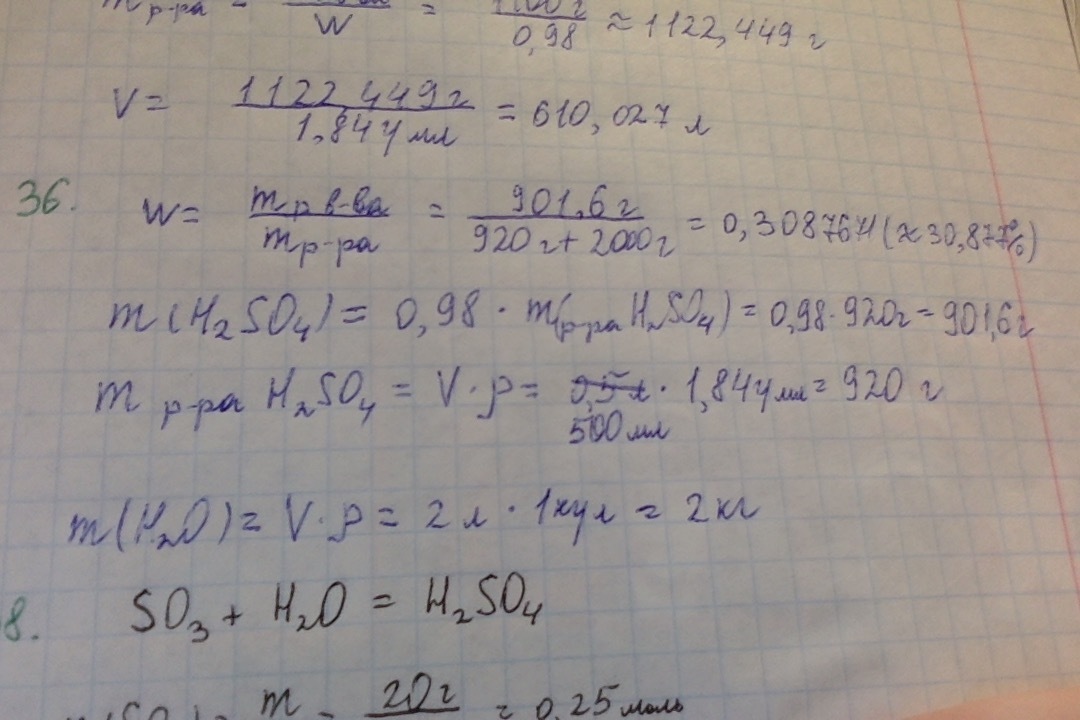 m р-ра = / W = / 0,98 ≈ 1122,449 г
V = 1122,449 г / 1,84 г/мл = 610,027 л
36. W = m р в-ва / m р-ра = 901,6 г / 920 г + 2000 г = 0,308767 (≈ 30,877%)
m (H₂SO₄) = 0,98 · m(р-ра H₂SO₄) = 0,98 · 920г = 901,6 г
m р-ра H₂SO₄ = V · ρ = 0,5 л · 1,84 г/мл = 920 г
500 мл
m (H₂O) = V · ρ = 2 л · 1 кг/л = 2 кг
8. SO₃ + H₂O = H₂SO₄
m = 20 г = 0,25 моль